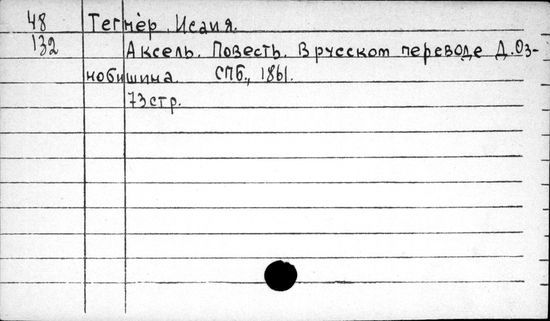 48 Тегнèр. Исаия.
132 Аксель. Повесть. В русском переводе Д. Оз-
нобишина. СПБ., 1861.
73 стр.